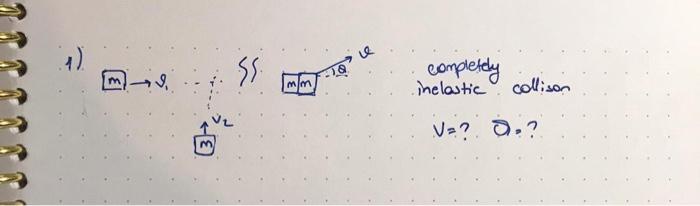 1)
m → v₁
m m v θ
v₂
m
completely
inelastic collison
V=? θ=?